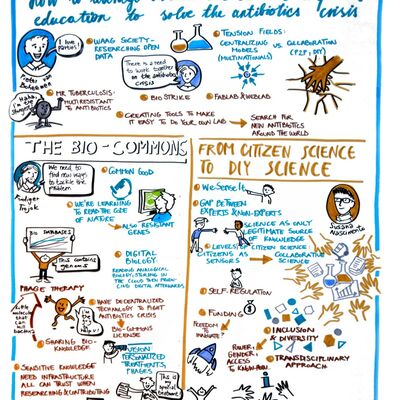 education to solve the antibiotics crisis
I love parties!
Pieter van Boheemen
WAAG SOCIETY-
RESEARCHING OPEN
DATA
There is a need to work together on the antibiotics CRISIS
TENSION FIELDS:
CENTRALIZING MODELS (MULTINATIONALS)
VS.
COLLABORATION (P2P, DIY)
MR TUBERCULOSIS:
MULTIRESISTANT
TO ANTIBIOTICS
BIO STRIKE
FABLAB & WETLAB
CREATING TOOLS TO MAKE
IT EASY TO DO YOUR OWN LAB
SEARCH FOR
NEW ANTIBIOTICS
AROUND THE WORLD
THE BIO-COMMONS
We need to
find new ways
to tackle the
problem
Rüdiger
Trojok
COMMON GOOD
WE'RE LEARNING
TO READ THE CODE
OF NATURE
ALSO RESISTANT
GENES
BIO DATABASES
This contains
genoms
DIGITAL
BIOLOGY
READING ANALOGICAL
BIOLOGY, STORING IN
THE CLOUD THEN PRODU-
CING DIGITAL AFTERWARDS
PHAGE THERAPY
Little
molecule
that
can kill
bacteria
WE HAVE DECENTRALIZED
TECHNOLOGY TO FIGHT
ANTIBIOTICS CRISIS
BIO-COMMONS
LICENSE
SHARING BIO-
KNOWLEDGE
VISION
PERSONALIZED
TREATMENTS,
PHAGES
SENSITIVE KNOWLEDGE
NEED INFRASTRUCTURE
ALL CAN TRUST WHEN
RESEARCHING & CONTRIBUTING
This is
my
personal
biobank
FROM CITIZEN SCIENCE
TO DIY SCIENCE
WE SENSE IT
Susana
Nascimento
GAP BETWEEN
EXPERTS & NON-EXPERTS
SCIENCE AS ONLY
LEGITIMATE SOURCE
OF KNOWLEDGE
LEVELS OF CITIZEN SCIENCE
CITIZENS AS
SENSORS
COLLABORATIVE
SCIENCE
SELF-REGULATION
FUNDING
FREEDOM
TO
INNOVATE?
INCLUSION
& DIVERSITY
POWER,
GENDER,
ACCESS
TO KNOW-HOW
TRANSDISCIPLINARY
APPROACH